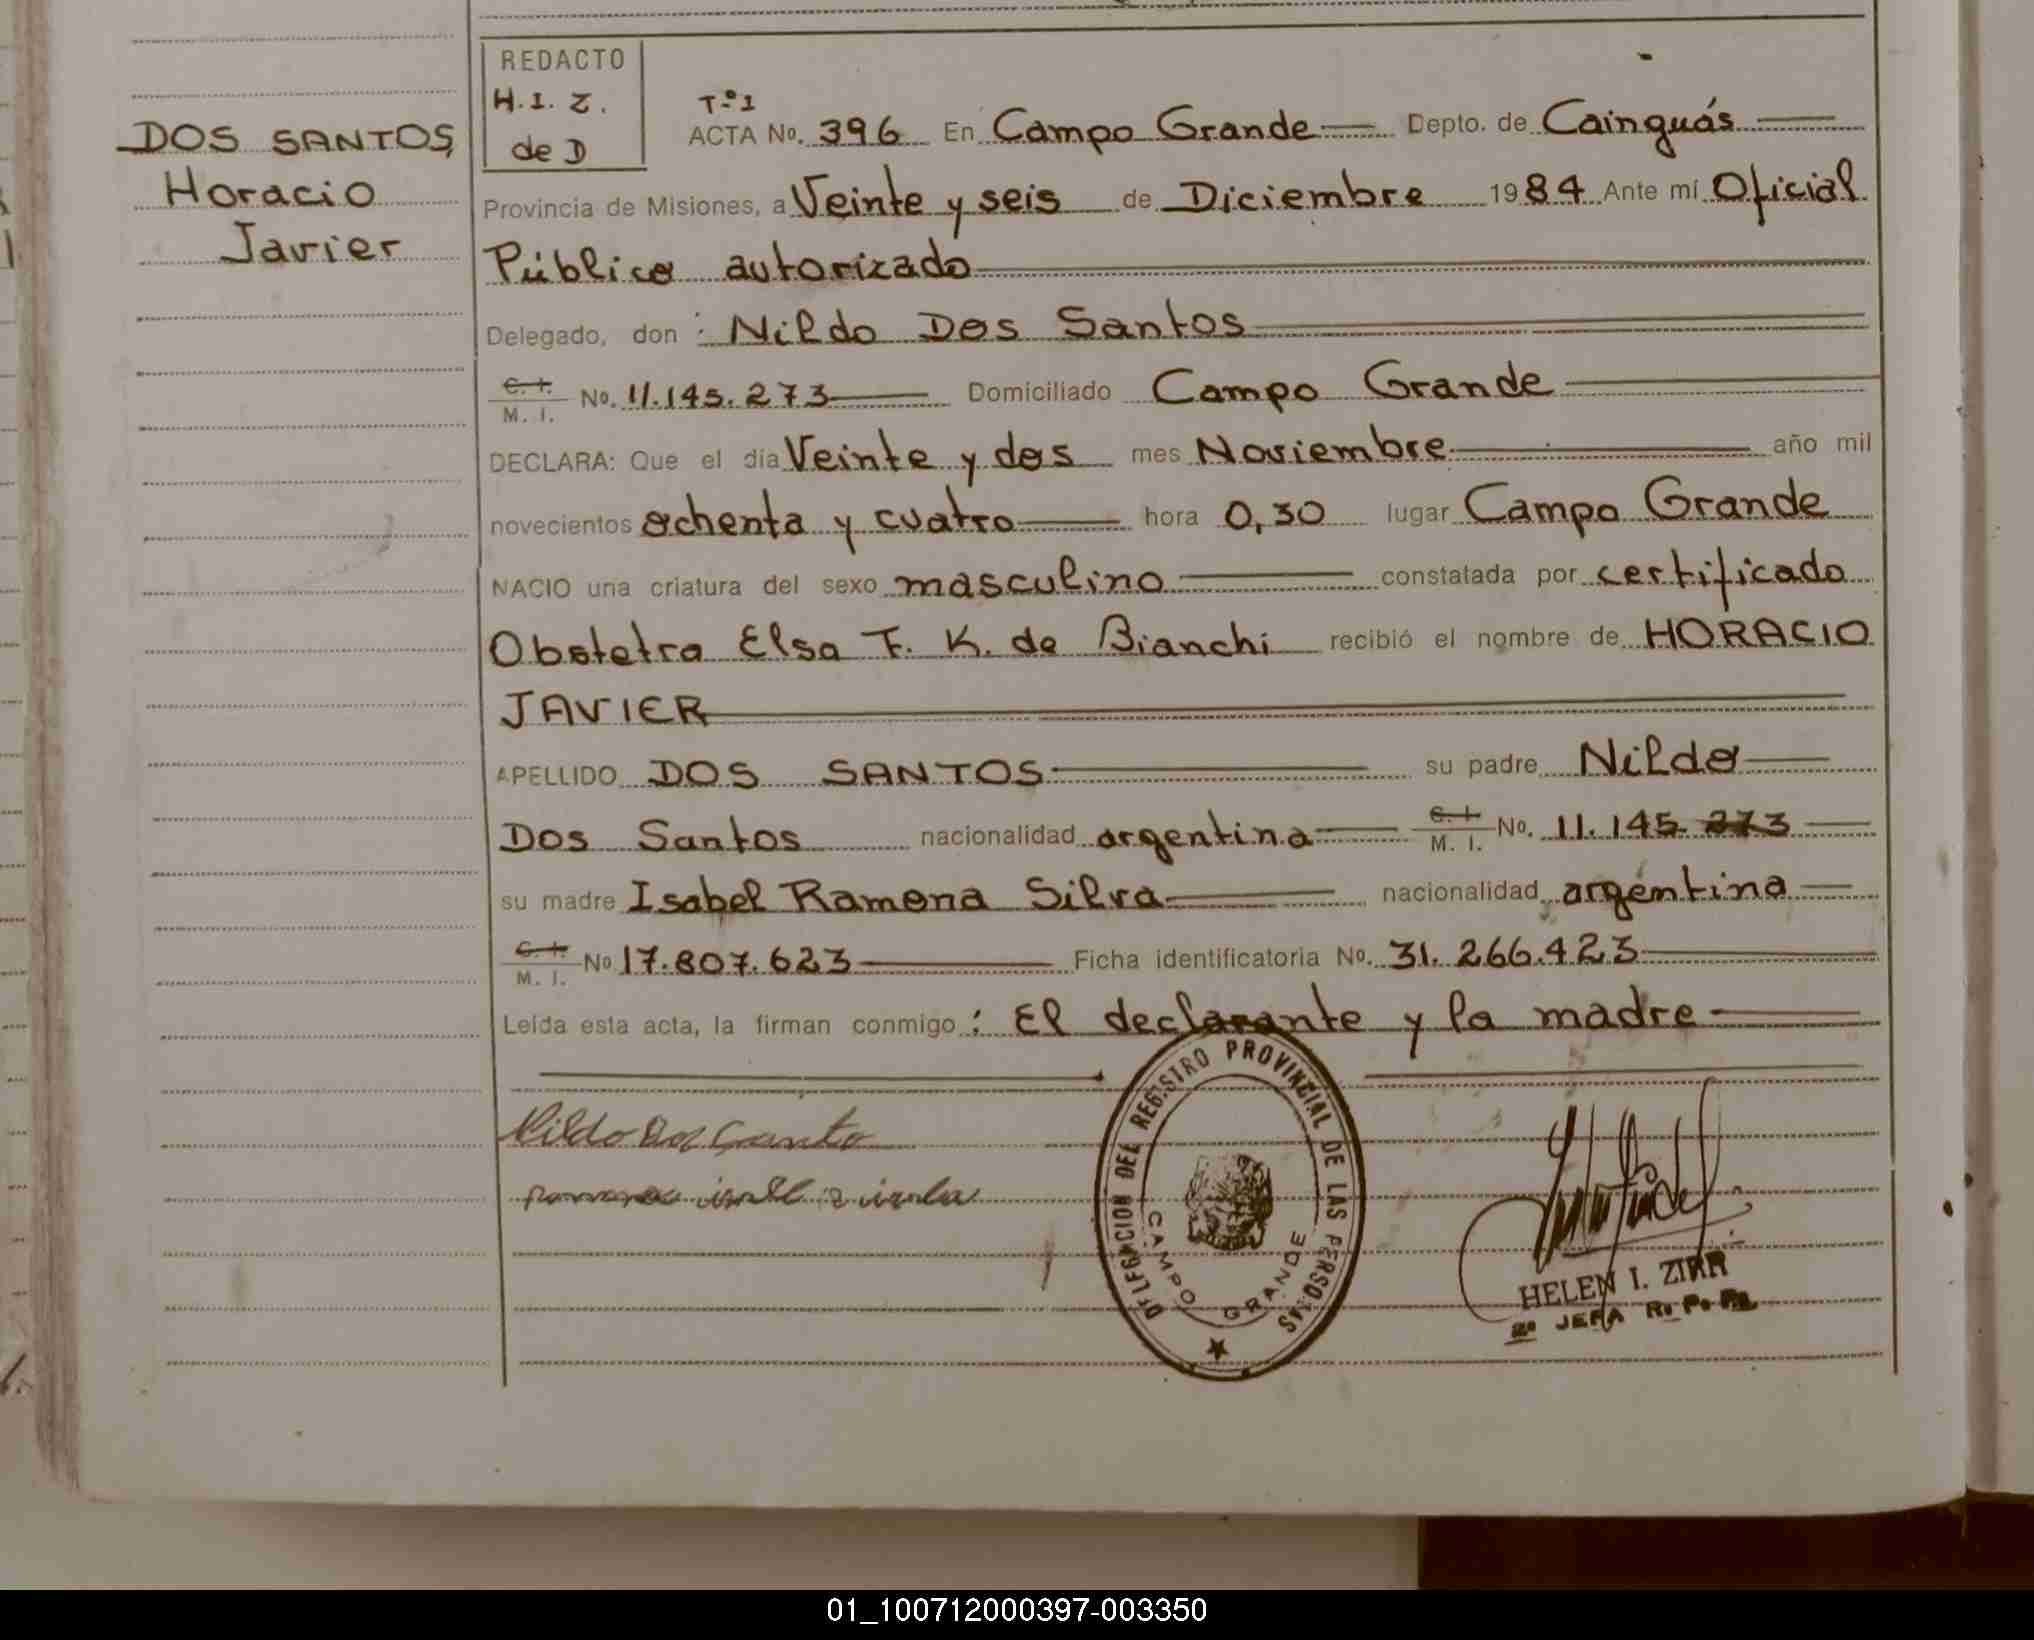 DOS SANTOS,
Horacio
Javier
REDACTO
H.I.Z.
de D
Tº1
ACTA No. 396 En Campo Grande Depto. de Cainguás
Provincia de Misiones, a Veinte y seis de Diciembre 1984 Ante mí Oficial
Público autorizado
Delegado, don : Nildo Dos Santos
C. I. M. I. No. 11.145.273 Domiciliado Campo Grande
DECLARA: Que el día Veinte y dos mes Noviembre año mil
novecientos ochenta y cuatro hora 0,30 lugar Campo Grande
NACIO una criatura del sexo masculino constatada por certificado
Obstetra Elsa F. K. de Bianchi recibió el nombre de HORACIO
JAVIER
APELLIDO DOS SANTOS su padre Nildo
Dos Santos nacionalidad argentina C. I. M. I. No. 11.145.273
su madre Isabel Ramona Silva nacionalidad argentina
C. I. M. I. No 17.807.623 Ficha identificatoria No. 31.266.423
Leída esta acta, la firman conmigo : El declarante y la madre
Nildo Dos Santo
DELEGACION DEL REGISTRO PROVINCIAL DE LAS PERSONAS
CAMPO GRANDE
HELEN I. ZIRR
2º JEFA R. P. P.
01_100712000397-003350